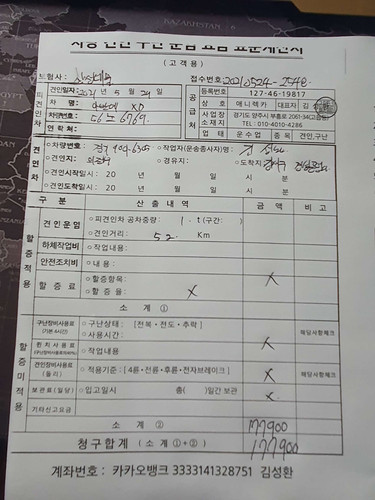 차량 견인·구난 운임·요금 표준계산서
(고객용)
보험사: 접수번호
견인일자: 2021년 5월 24일
차 명: XD
차량번호: 56노 6769.
연락처:
피견인차
공급처
등록번호 127-46-19817
상호 애니렉카 대표자 김
사업장소재지 경기도 양주시 부흥로 2061-34(고읍동)
TEL : 010-4010-4286
업태 운수업 종목 견인,구난
견인차
차량번호: 작업자(운송종사자)명:
견인지: 경유지: 도착지:
견인시작일시 : 20 년 월 일 시 분
견인도착일시 : 20 년 월 일 시 분
구 분 산 출 내 역 금 액 비 고
할증적용
견인운임 피견인차 공차중량: 1 . t (구간: )
견인거리: 52. Km
하체작업비 작업내용:
안전조치비 내 용:
할 증 료 할증항목: X
할 증 율: X
소 계 ①
할증미적용
구난장비사용료 (기본 4시간) 구난상태: [전복·전도·추락] 해당사항체크
사용시간:
윈치사용료 X
작업내용
견인장비사용료 (돌리) 적용기준: [4륜·전륜·후륜·전자브레이크] X 해당사항체크
보관료(일당) 입고일시 총( )일간 보관 X
기타신고요금
소 계 ② 177900
청구합계 (소계①+②) 177900
계좌번호 : 카카오뱅크 3333141328751 김성환